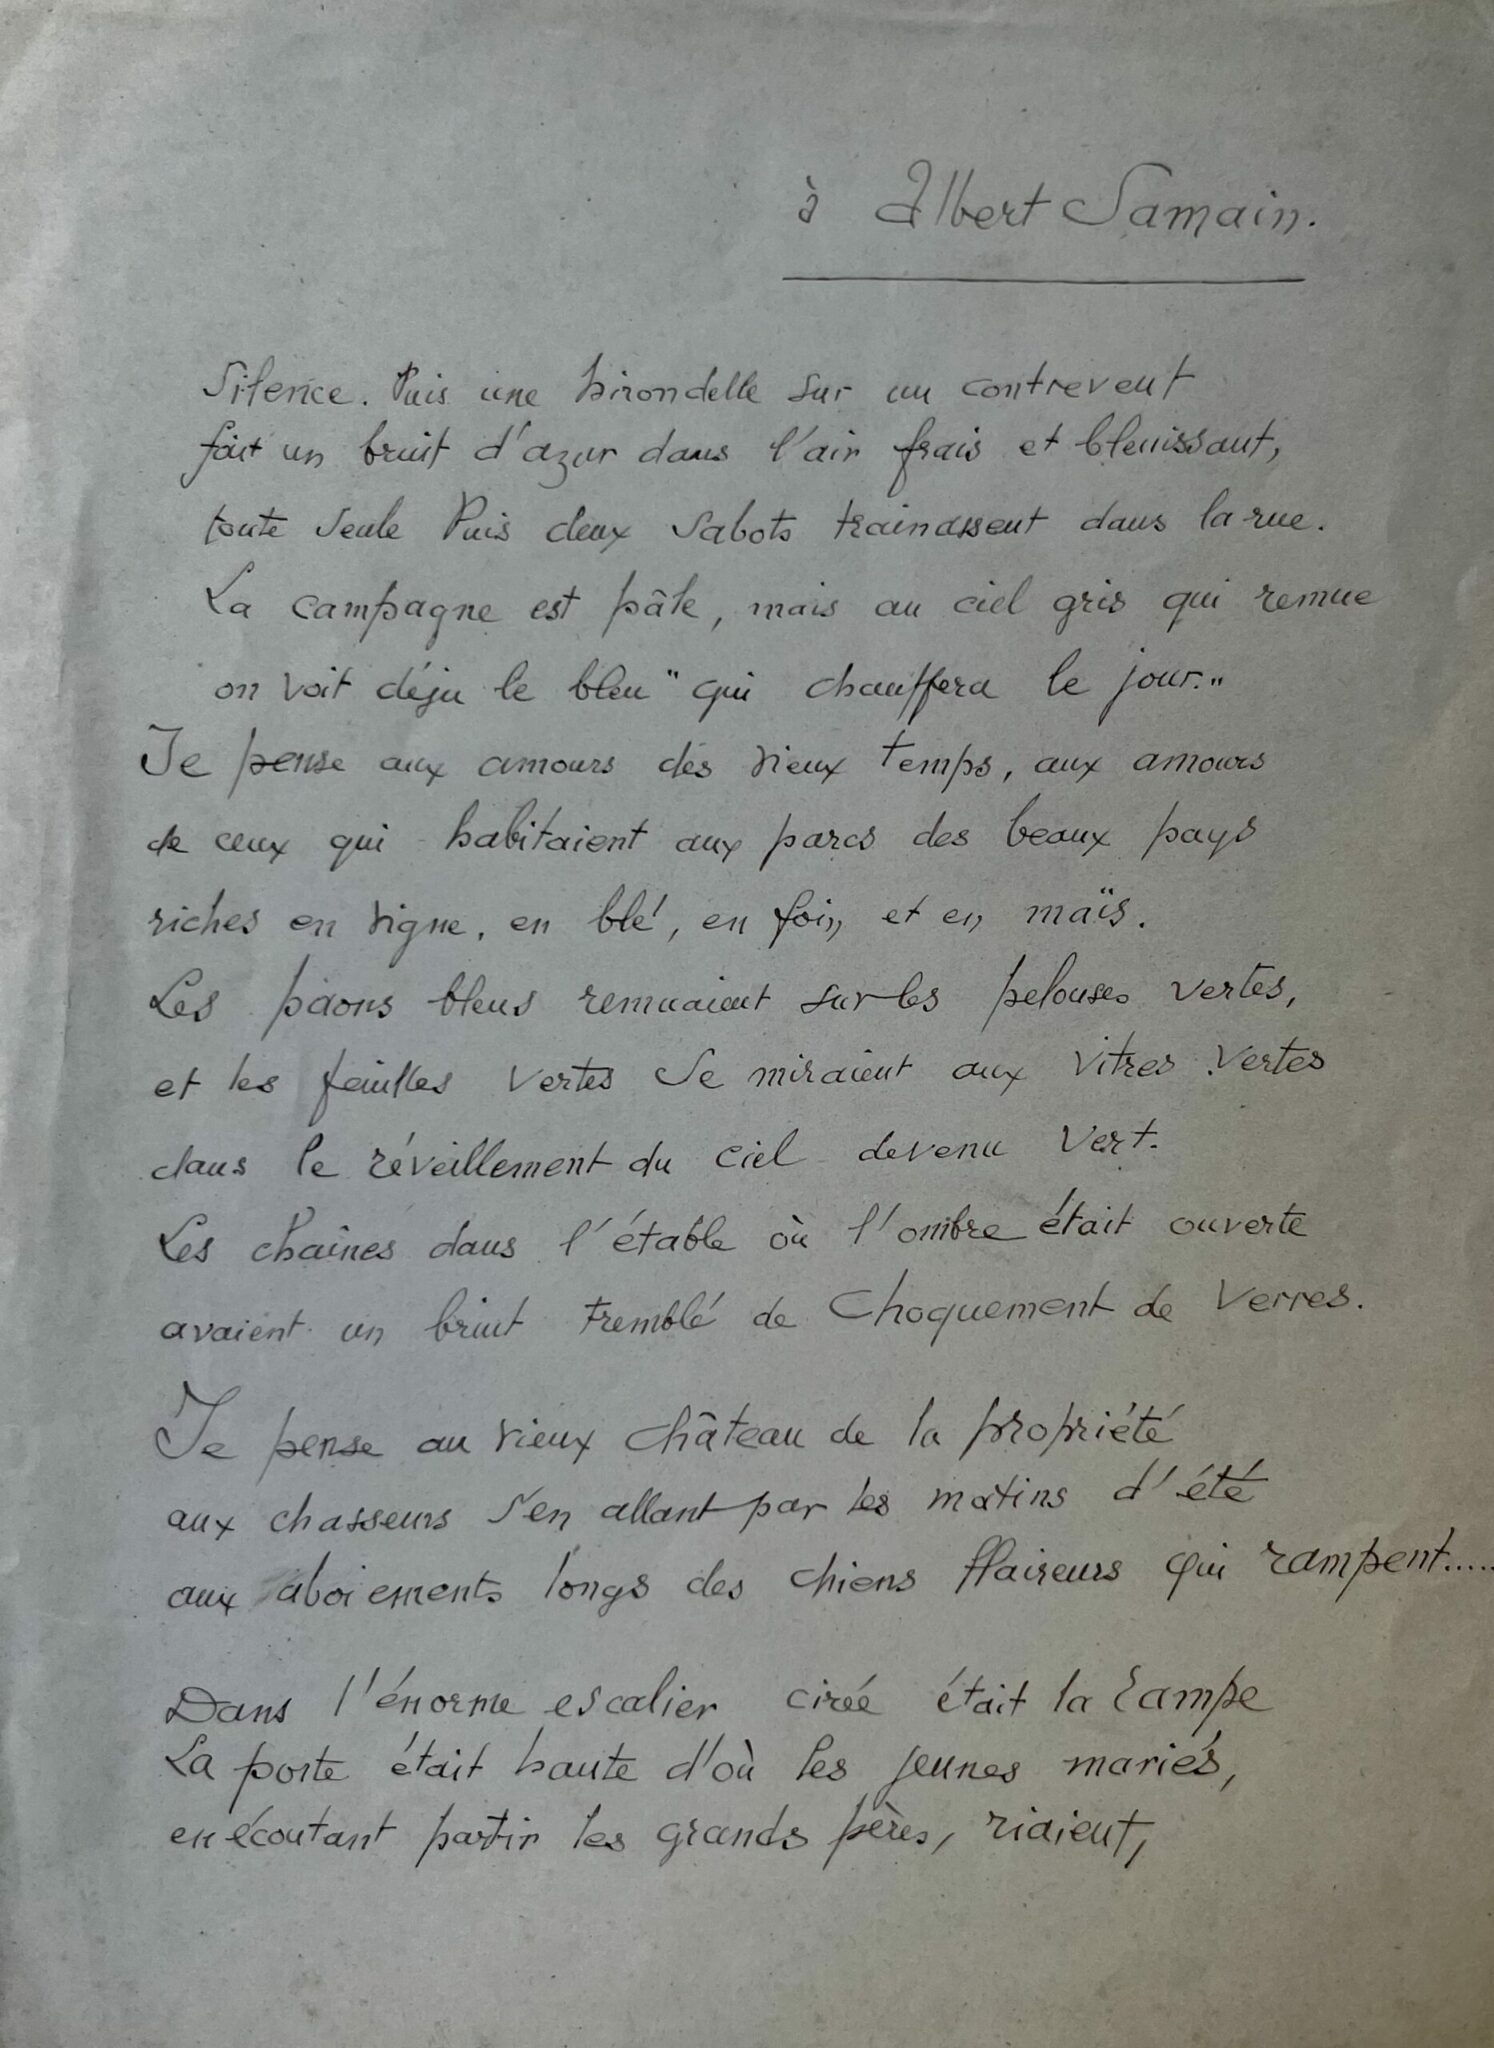 à Albert Samain.
Silence. Puis une hirondelle sur un contrevent
fait un bruit d'azur dans l'air frais et bleuissant,
toute seule Puis deux sabots trainassent dans la rue.
La campagne est pâle, mais au ciel gris qui remue
on voit déja le bleu " qui chauffera le jour."
Je pense aux amours des vieux temps, aux amours
de ceux qui habitaient aux parcs des beaux pays
riches en vigne, en blé, en foin et en maïs.
Les paons bleus remuaient sur les pelouses vertes,
et les feuilles vertes se miraient aux vitres vertes
dans le réveillement du ciel devenu vert.
Les chaînes dans l'étable où l'ombre était ouverte
avaient un bruit tremblé de choquement de verres.
Je pense au vieux château de la propriété
aux chasseurs s'en allant par les matins d'été
aux aboiements longs des chiens flaireurs qui rampent.....
Dans l'énorme escalier cirée était la rampe
La porte était haute d'où les jeunes mariés,
en écoutant partir les grands pères, riaient,